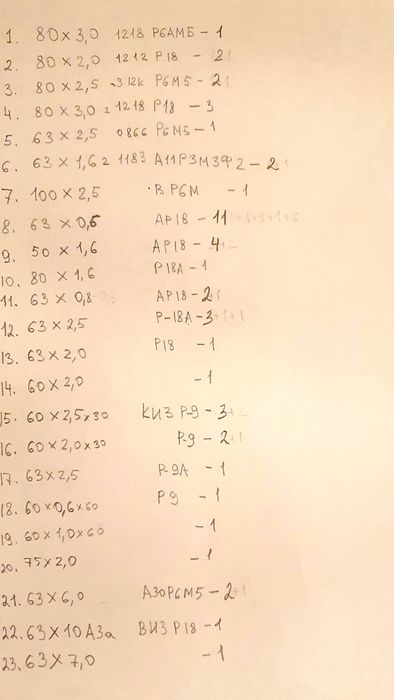 1. 80×3,0 1218 Р6АМ5 – 1
2. 80×2,0 1212 Р18 – 2
3. 80×2,5 Р6М5 – 2
4. 80×3,0 2 1218 Р18 – 3
5. 63×2,5 0866 Р6М5 – 1
6. 63×1,6 2 1183 А11Р3М3Ф2 – 2
7. 100×2,5 В Р6М – 1
8. 63×0,6 АР18 – 11
9. 50×1,6 АР18 – 4
10. 80×1,6 Р18А – 1
11. 63×0,8 АР18 – 2
12. 63×2,5 Р-18А – 3
13. 63×2,0 Р18 – 1
14. 60×2,0 – 1
15. 60×2,5×30 КИЗ Р-9 – 3
16. 60×2,0×30 Р-9 – 2
17. 63×2,5 Р-9А – 1
18. 60×0,6×60 Р9 – 1
19. 60×1,0×60 – 1
20. 75×2,0 – 1
21. 63×6,0 А30Р6М5 – 2
22. 63×10 А3а ВИЗ Р18 – 1
23. 63×7,0 – 1